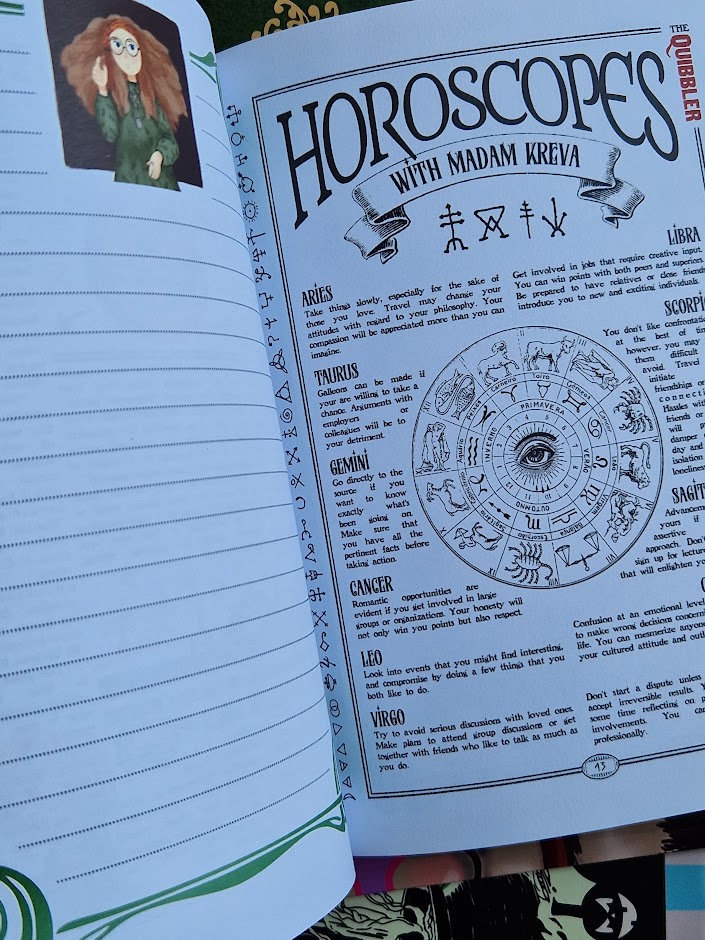 THE
QUIBBLER
HOROSCOPES
WITH MADAM KREVA
ARIES
Take things slowly, especially for the sake of
those you love. Travel may change your
attitudes with regard to your philosophy. Your
compassion will be appreciated more than you can
imagine.
TAURUS
Galleons can be made if
your are willing to take a
chance. Arguments with
employers or
colleagues will be to
your detriment.
GEMINI
Go directly to the
source if you
want to know
exactly what's
been going on.
Make sure that
you have all the
pertinent facts before
taking action.
CANCER
Romantic opportunities are
evident if you get involved in large
groups or organizations. Your honesty will
not only win you points but also respect.
LEO
Look into events that you might find interesting,
and compromise by doing a few things that you
both like to do.
VIRGO
Try to avoid serious discussions with loved ones.
Make plans to attend group discussions or get
together with friends who like to talk as much as
you do.
LIBRA
Get involved in jobs that require creative input.
You can win points with both peers and superiors.
Be prepared to have relatives or close friends
introduce you to new and exciting individuals.
SCORPIO
You don't like confrontatio
at the best of tim
however, you may
them difficult
avoid. Travel
initiate
friendships or
connecti
Hassles with
friends or
will p
damper
day and
isolation
loneliness
SAGIT
Advancem
yours if
assertive
approach. Don't
sign up for lectur
that will enlighten yo
C
Confusion at an emotional level
to make wrong decisions concerni
life. You can mesmerize anyone
your cultured attitude and outl
Don't start a dispute unless
accept irreversible results. Y
some time reflecting on p
involvements. You can
professionally.
PRIMAVERA
VERÃO
OUTOMNO
INVERNO
Carneiro
Touro
Gemeos
Leão
Balança
Escorpião
13